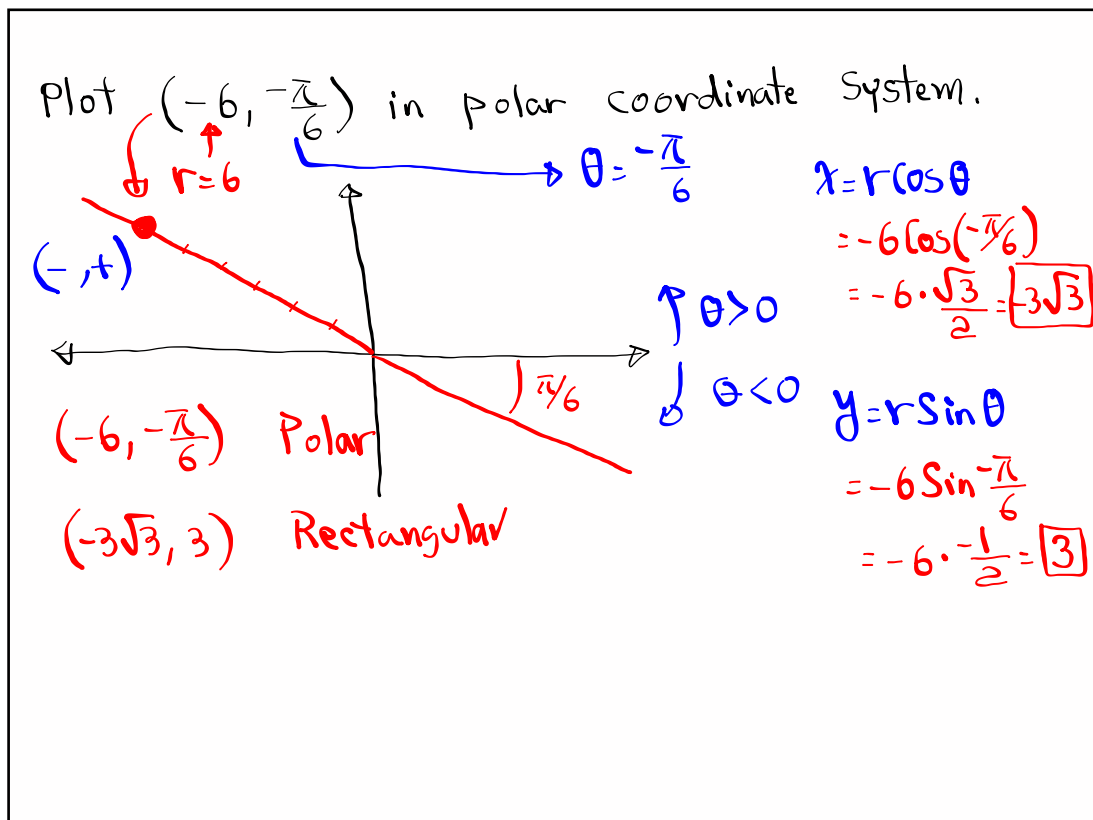 Plot (-6, -π/6) in polar coordinate system.
r=6
θ = -π/6
(-,+)
π/6
θ>0
θ<0
(-6, -π/6) Polar
(-3√3, 3) Rectangular
x=rcosθ
=-6Cos(-π/6)
=-6·√3/2=-3√3
y=rSinθ
=-6Sin -π/6
=-6·-1/2=3